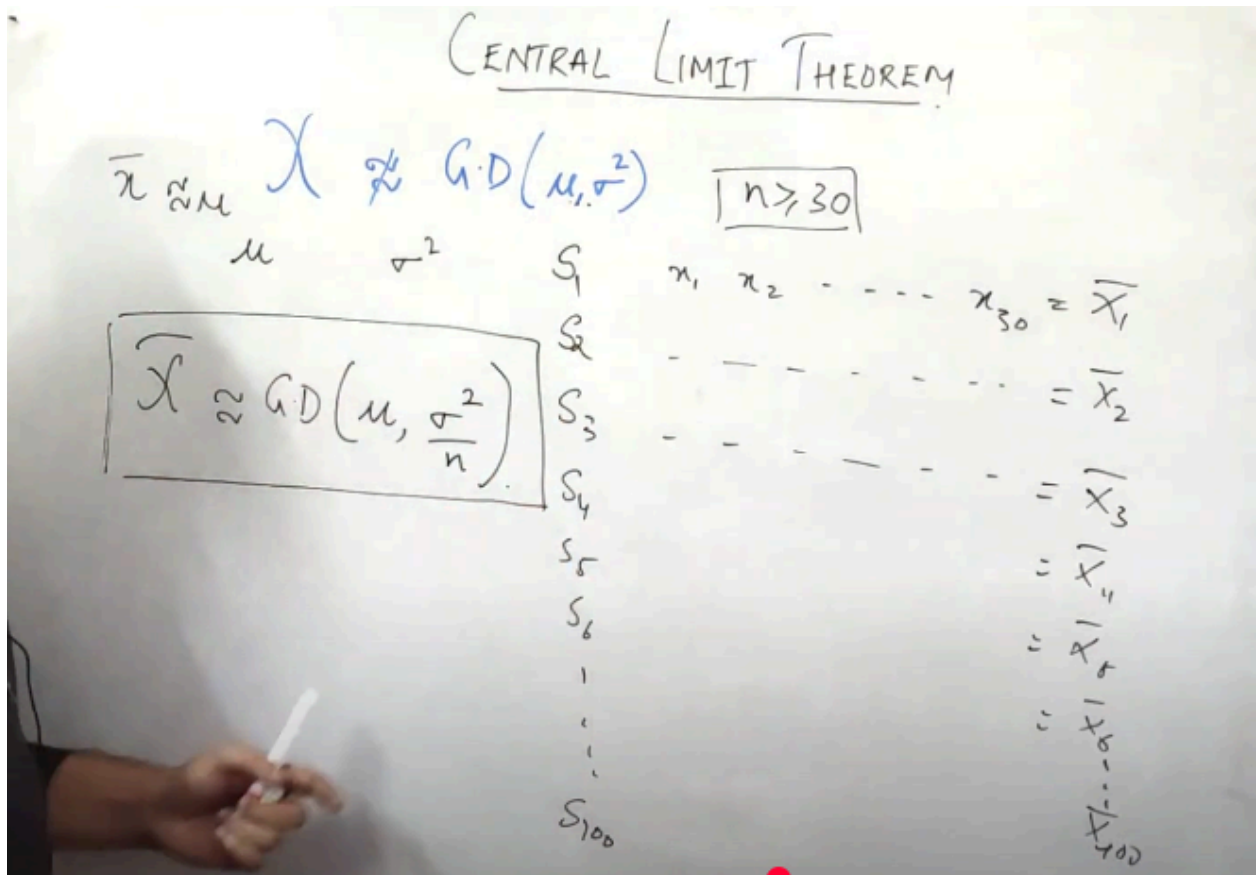 CENTRAL LIMIT THEOREM
x̄ ≈ μ X ≉ G.D(μ, σ²) n ≥ 30
μ σ²
S₁ x₁ x₂ - - - - - x₃₀ = X̄₁
S₂ - - - - - - - = X̄₂
X̄ ≈ G.D(μ, σ²/n).
S₃ - - - - - - - = X̄₃
S₄ = X̄₄
S₅ = X̄₅
S₆ = X̄₆
S₁₀₀ X̄₁₀₀